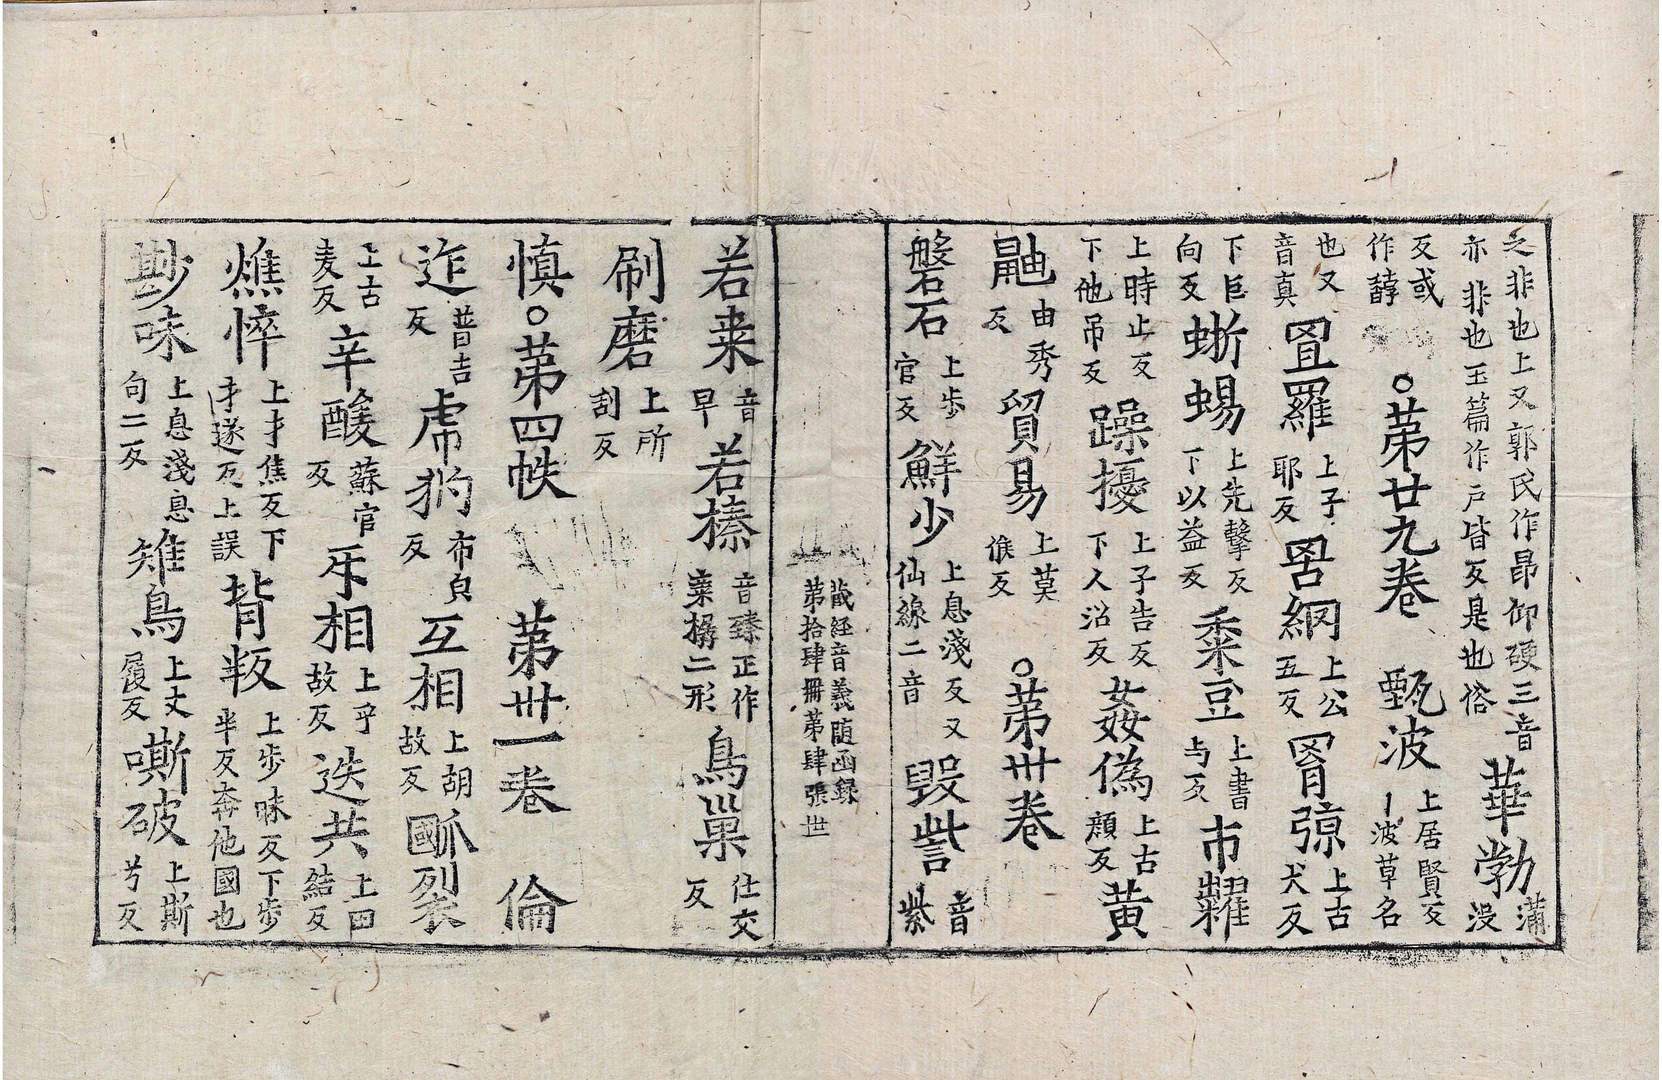 之非也上又郭氏作昂仰硬三音華勃蒲
亦非也玉篇作戸皆反是也俗没
反或作誖○苐廿九卷甄波上居賢反丨波草名
也又音真罝羅上子耶反罟網上公五反罥弶上古犬反
下巨向反蜥蜴上先擊反下以益反黍豆上書与反市糶
上時止反下他吊反躁擾上子告反下人沼反姦偽上古顔反黄
鼬由秀反貿易上莫候反○苐卅卷
磐石上步官反鮮少上息淺反又仙線二音毀訾音紫
藏経音義随函録
苐拾肆冊苐肆張世
若枣音早若榛音臻正作亲樼二形鳥巢仕交反
刷磨上所刮反
慎○苐四帙苐卅一卷倫
迮普吉反虎犳布皃反互相上胡故反㽿裂
上古麦反辛酸蘇官反㸦相上乎故反迭共上田結反
燋悴上才焦反下才遂反上誤背叛上步昧反下步半反奔他國也
尠味上息淺息句二反雉鳥上丈履反嘶破上斯兮反